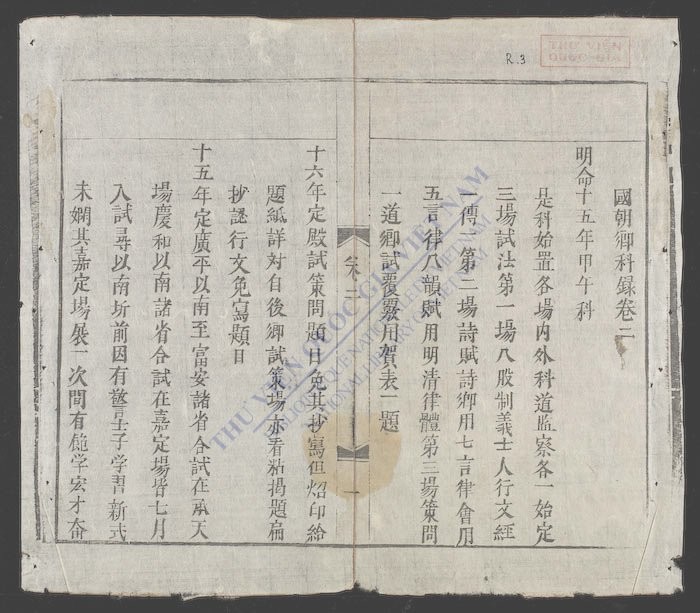 國朝鄉科錄卷二
明命十五年甲午科
是科始置各場內外科道監察各一始定
三場試法第一場八股制義士人行文經
一傳一第二場詩賦詩鄉用七言律會用
五言律八韻賦用明清律體第三場策問
一道鄉試覆覈用賀表一題
卷二
一
十六年定殿試策問題目免其抄寫但炤印給
題紙詳对自後鄉試策場亦看粘揭題扁
抄謎行文免寫題目
十五年定廣平以南至富安諸省合試在承天
場慶和以南諸省合試在嘉定場皆七月
入試尋以南圻前因有警士子学習新式
未嫻其嘉定場展一次間有飽学宏才奋
R.3
THƯ VIỆN
QUỐC GIA
THƯ VIỆN QUỐC GIA VIỆT NAM
BIBLIOTHÈQUE NATIONALE DU VIETNAM
NATIONAL LIBRARY OF VIETNAM